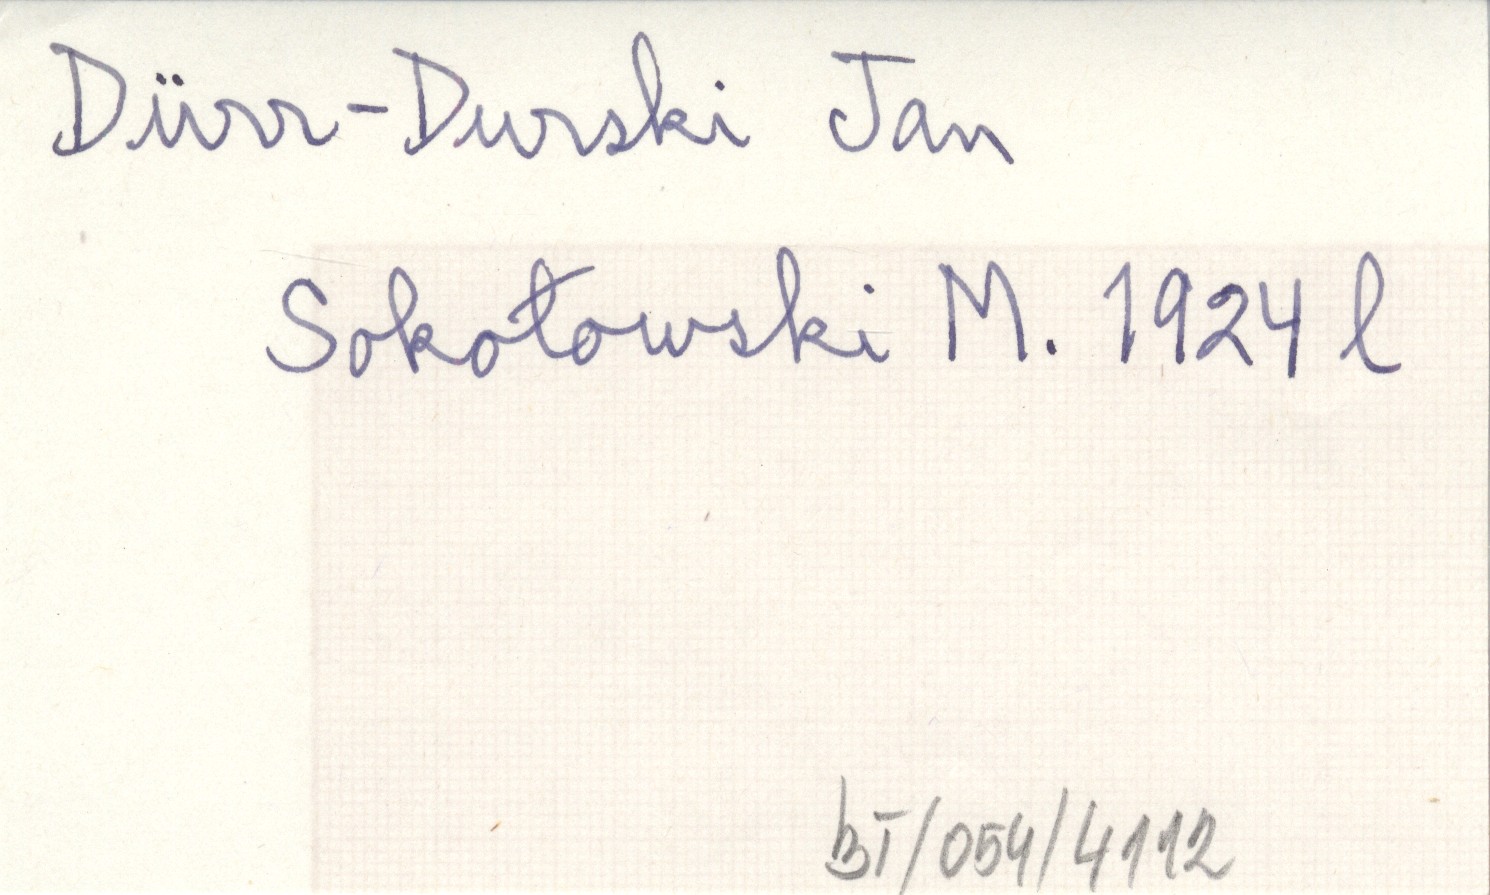 Dürr-Durski Jan
Sokołowski M. 1924 l
BT/054/4112